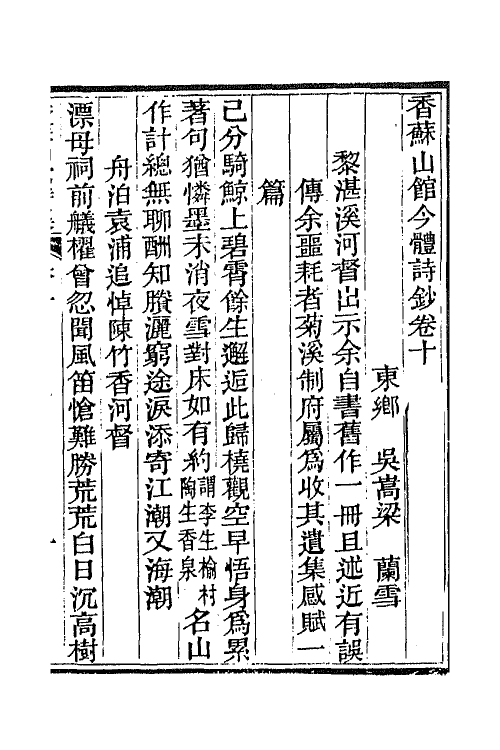 香蘇山館今體詩鈔卷十
東鄉　吳嵩梁　蘭雪
黎湛溪河督出示余自書舊作一冊且述近有誤
傳余噩耗者菊溪制府屬為收其遺集感賦一
篇
己分騎鯨上碧霄餘生邂逅此歸橈觀空早悟身為累
著句猶憐墨未消夜雪對床如有約謂李生榆村陶生香泉名山
作計總無聊酬知賸灑窮途淚添寄江潮又海潮
舟泊袁浦追悼陳竹香河督
漂母祠前艤櫂曾忽聞風笛愴難勝荒荒白日沉高樹
一